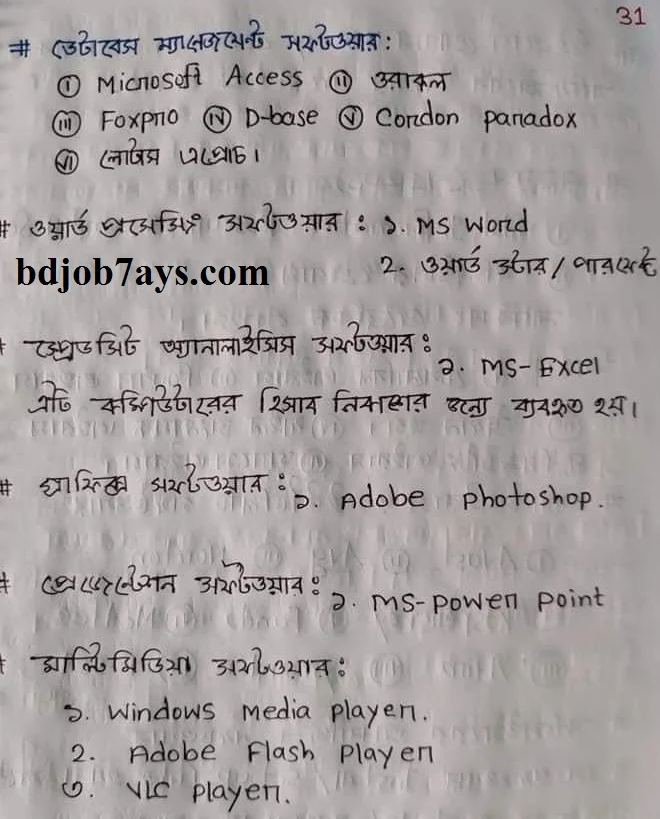 31
# ডেটাবেস ম্যানেজমেন্ট সফটওয়ার:
(i) Microsoft Access (ii) ওরাকল
(iii) Foxpro (iv) D-base (v) Cordon paradox
(vi) লোটাস এপ্রোচ।
# ওয়ার্ড প্রসেসিং সফটওয়ার : ১. MS Word
bdjob7ays.com
২. ওয়ার্ড স্টার / পারফেক্ট
# স্প্রেডসিট অ্যানালাইসিস সফটওয়ার :
১. MS-Excel
এটি কম্পিউটারের হিসাব নিকাশের জন্যে ব্যবহৃত হয়।
# গ্রাফিক্স সফটওয়ার : ১. Adobe photoshop.
# প্রেজেন্টেশন সফটওয়ার : ১. MS-power point
# মাল্টিমিডিয়া সফটওয়ার :
১. Windows media player.
২. Adobe Flash Player
৩. VLC player.